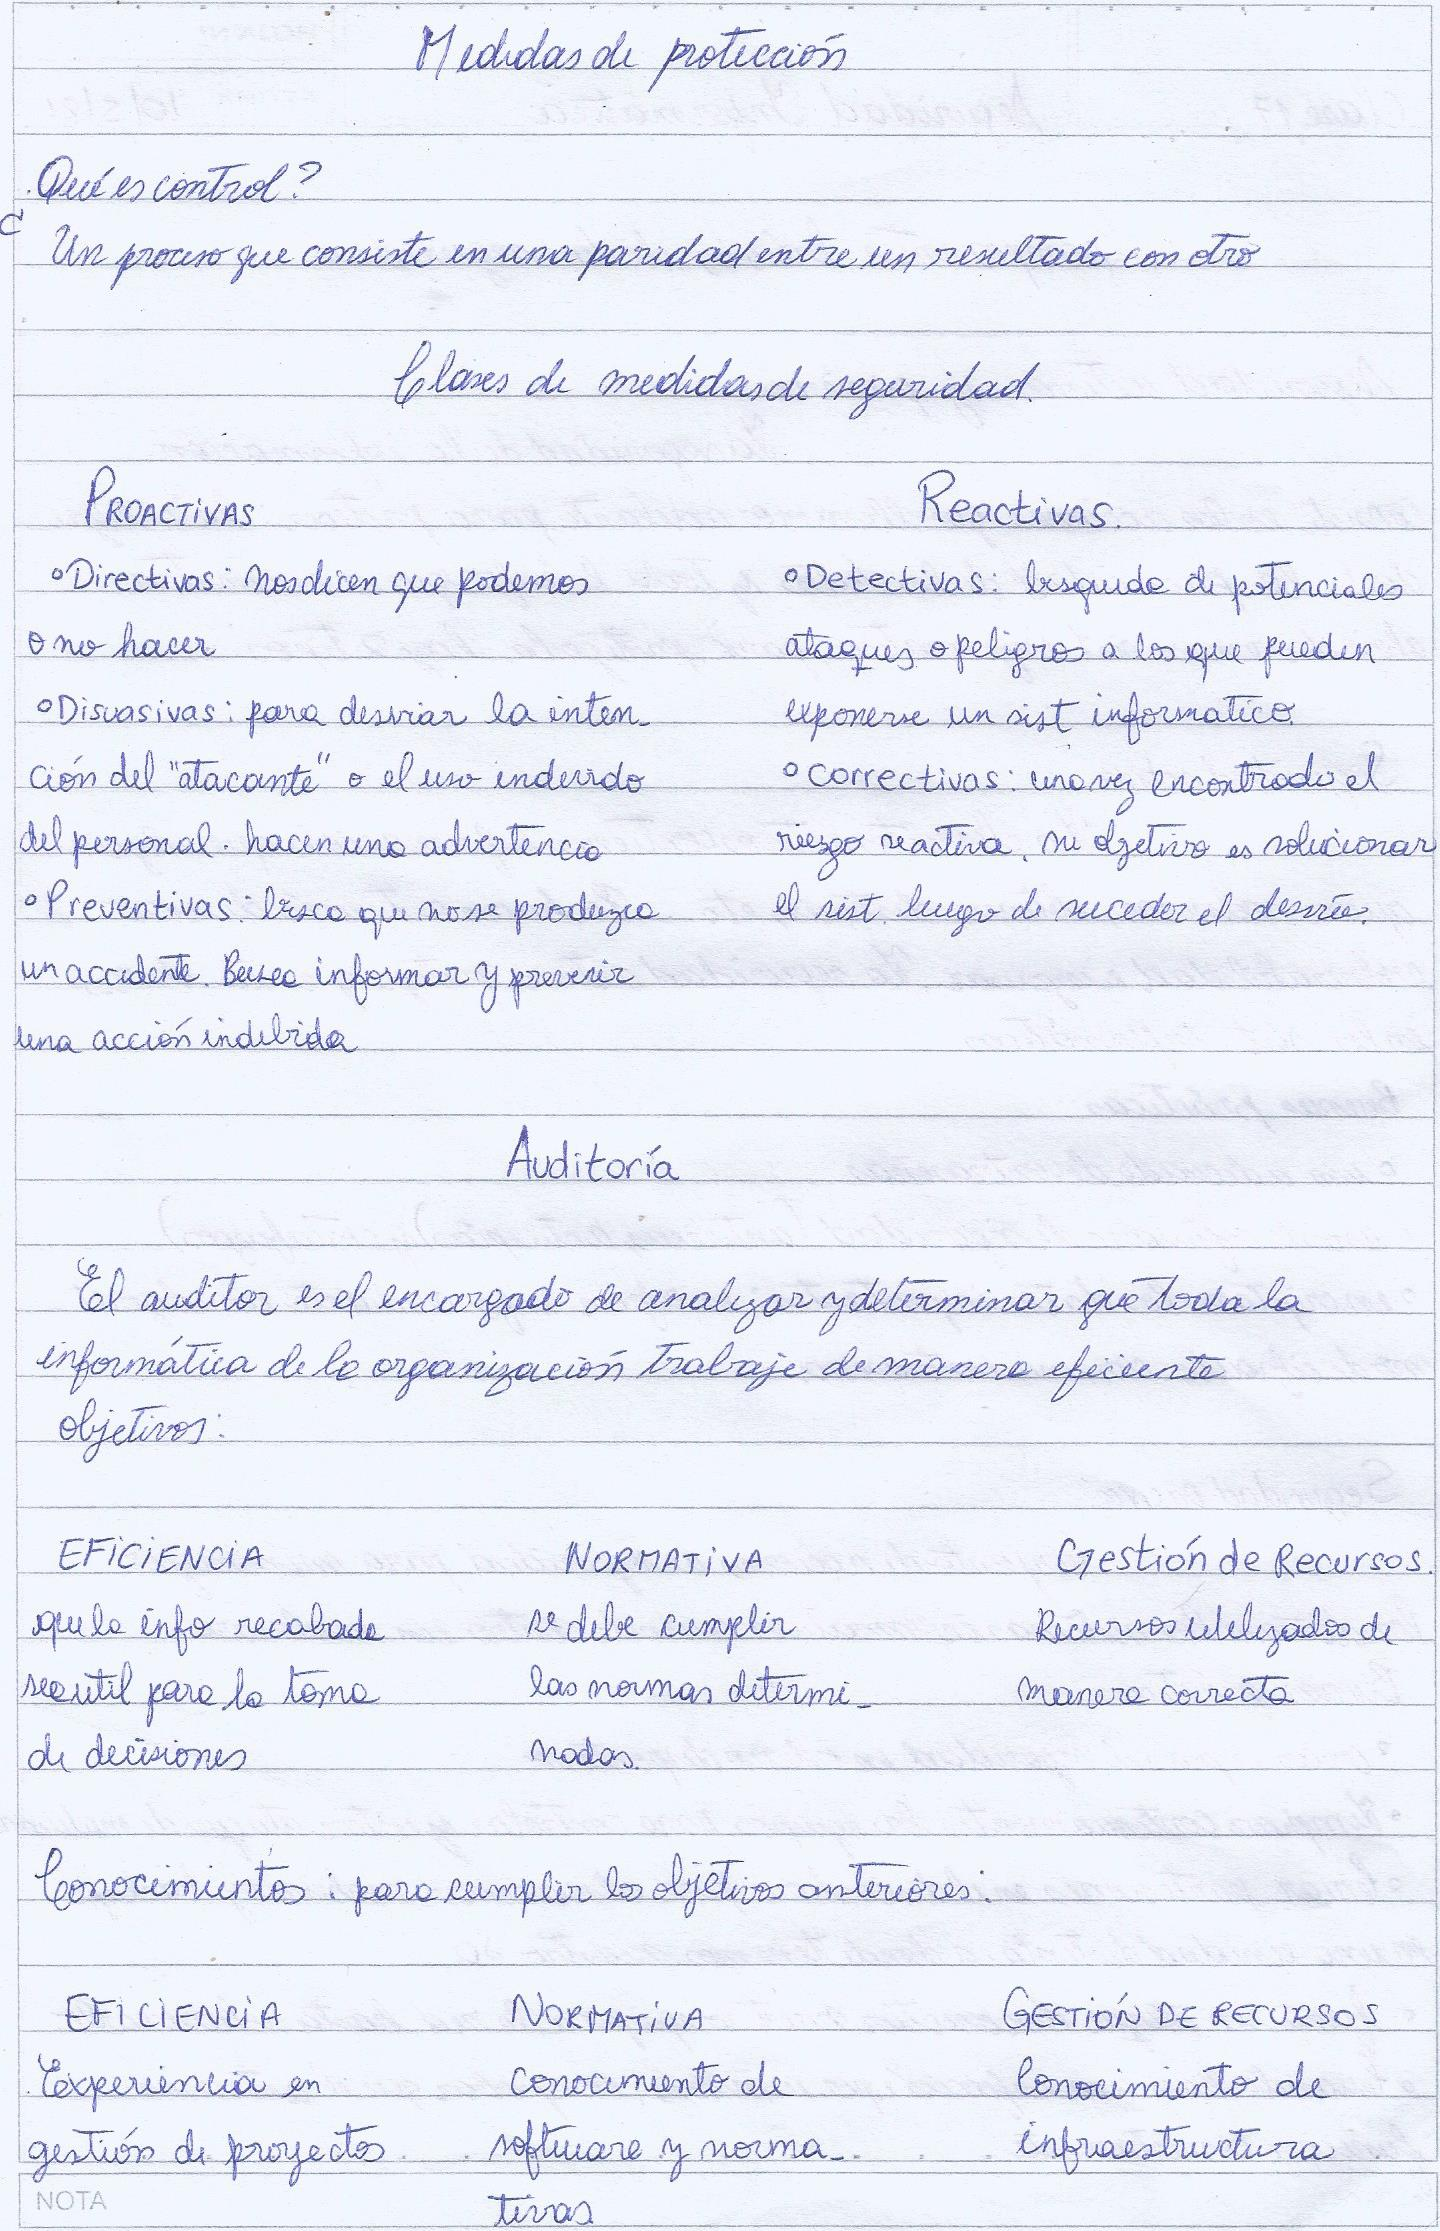 Medidas de protección
Qué es control?
Un proceso que consiste en una paridad entre un resultado con otro
Clases de medidas de seguridad.
PROACTIVAS
° Directivas: Nos dicen que podemos
o no hacer
° Disuasivas: para desviar la inten-
ción del "atacante" o el uso indevido
del personal. hacen una advertencia
° Preventivas: busca que no se produzca
un accidente. Busca informar y prevenir
una acción indebida
Reactivas.
° Detectivas: busqueda de potenciales
ataques o peligros a los que pueden
exponerse un sist informatico.
° correctivas: una vez encontrado el
riesgo reactiva. su objetivo es solucionar
el sist. luego de suceder el desvío.
Auditoría
El auditor es el encargado de analizar y determinar que toda la
informática de la organización trabaje de manera eficiente
objetivos:
EFICIENCIA
que la info recabada
sea util para la toma
de decisiones
NORMATIVA
se debe cumplir
las normas determi-
nadas.
Gestión de Recursos.
Recursos utilizados de
manera correcta
Conocimientos: para cumplir los objetivos anteriores:
EFICIENCIA
Experiencia en
gestión de proyectos
NORMATIVA
conocimiento de
software y norma-
tivas
GESTIÓN DE RECURSOS
Conocimiento de
infraestructura
NOTA